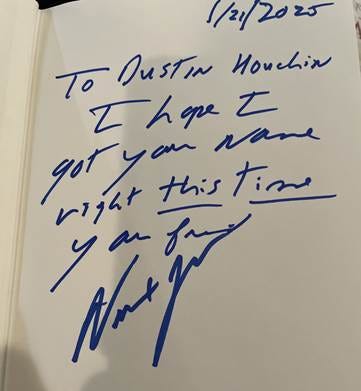 1/21/2025
To Dustin Houchin
I hope I
got your name
right this time
your friend
Newt